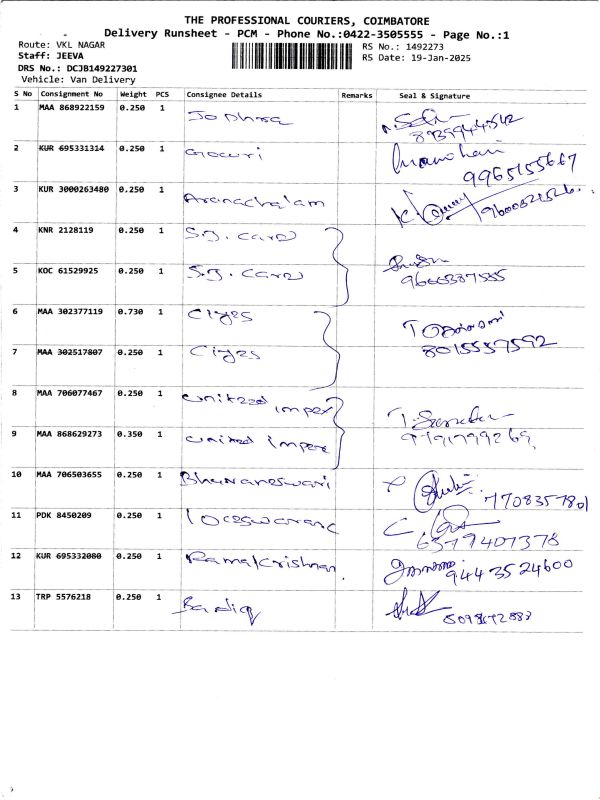 THE PROFESSIONAL COURIERS, COIMBATORE
Delivery Runsheet - PCM - Phone No.:0422-3505555 - Page No.:1
Route: VKL NAGAR
RS No.: 1492273
Staff: JEEVA
RS Date: 19-Jan-2025
DRS No.: DCJB149227301
Vehicle: Van Delivery
S No Consignment No Weight PCS Consignee Details Remarks Seal & Signature
1 MAA 868922159 0.250 1
2 KUR 695331314 0.250 1 Gowri
9965155667
3 KUR 3000263480 0.250 1 Arunachalam
4 KNR 2128119 0.250 1 S.J. Card
5 KOC 61529925 0.250 1 S.J. Card
6 MAA 302377119 0.730 1
7 MAA 302517807 0.250 1
8015557592
8 MAA 706077467 0.250 1 united impex
9 MAA 868629273 0.350 1 united impex
10 MAA 706503655 0.250 1 Bhuvaneswari
7708357801
11 PDK 8450209 0.250 1
6379407378
12 KUR 695332080 0.250 1 Ramakrishnan
9443524600
13 TRP 5576218 0.250 1